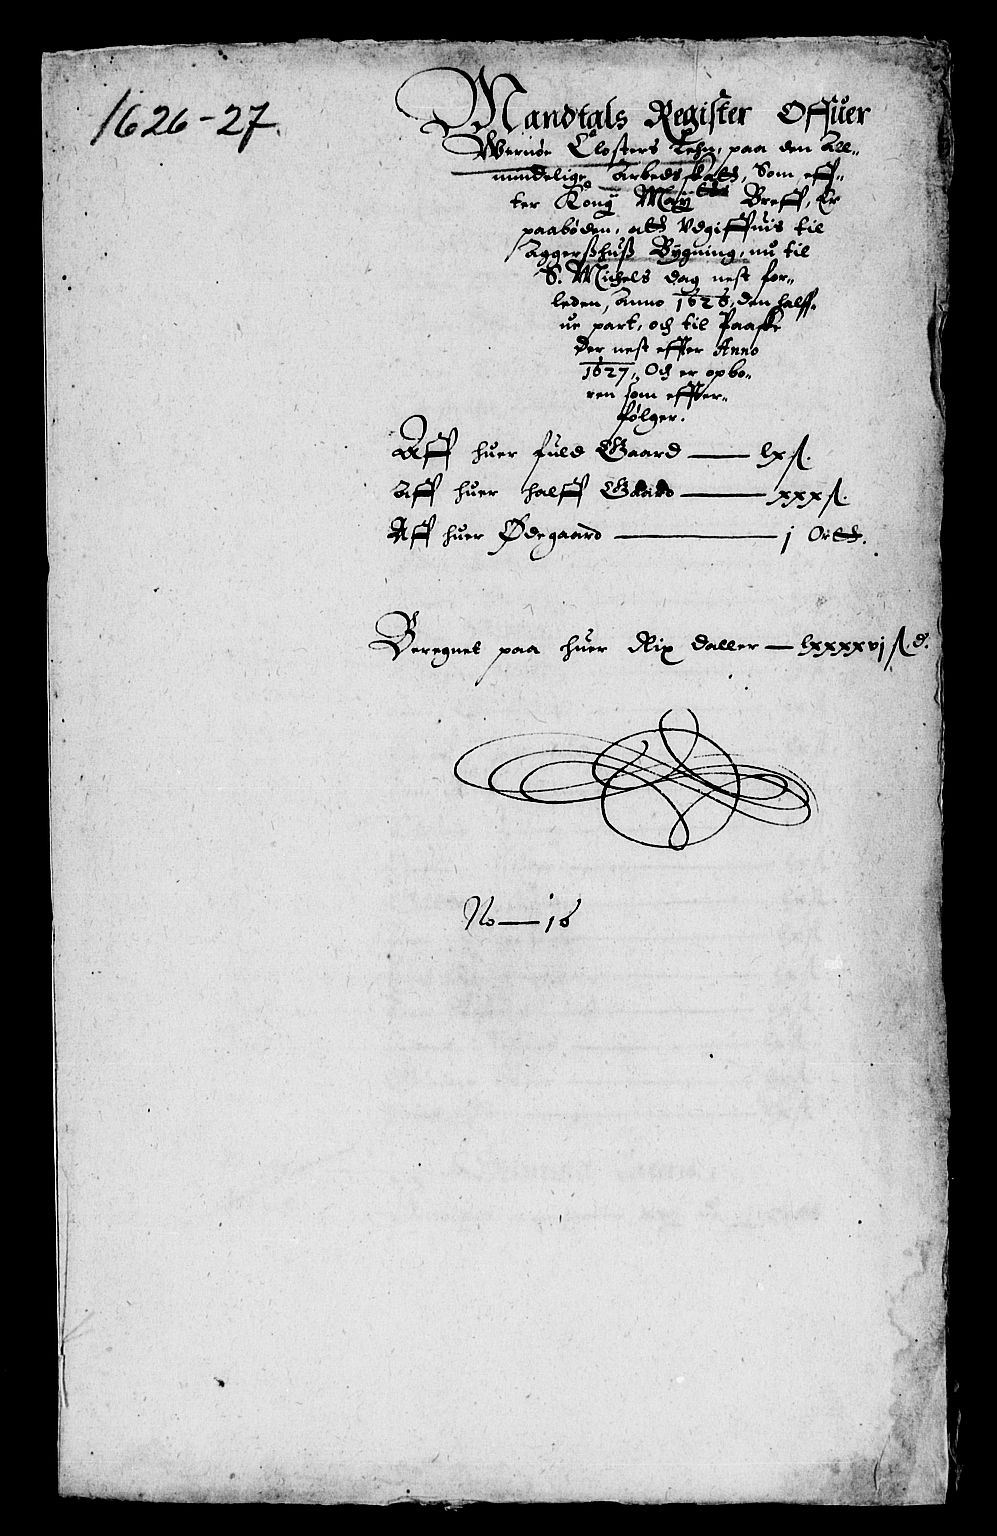 1626-27.
Mandtals Register Offuer
Wernøe Closters Lehn, paa den All-
mindelige Arbeds skatt, Som eff-
ter Kong: May:tts Breff, Er
paabøden, att Vdgiffuis til
Aggerßhuß Bygning, nu til
S. Michels dag nest for-
leden, Anno 1626, den halff-
ue part, och til Paaske
der nest effter Anno
1627, Och er opbo-
ren som effter-
følger.
Aff huer fuld Gaard — lx ß.
Aff huer halff Gaard — xxx ß.
Aff huer Ødegaard — j Ortt.
Beregnet paa huer Rix daller — lxxxxvj ß. d.
No — 16